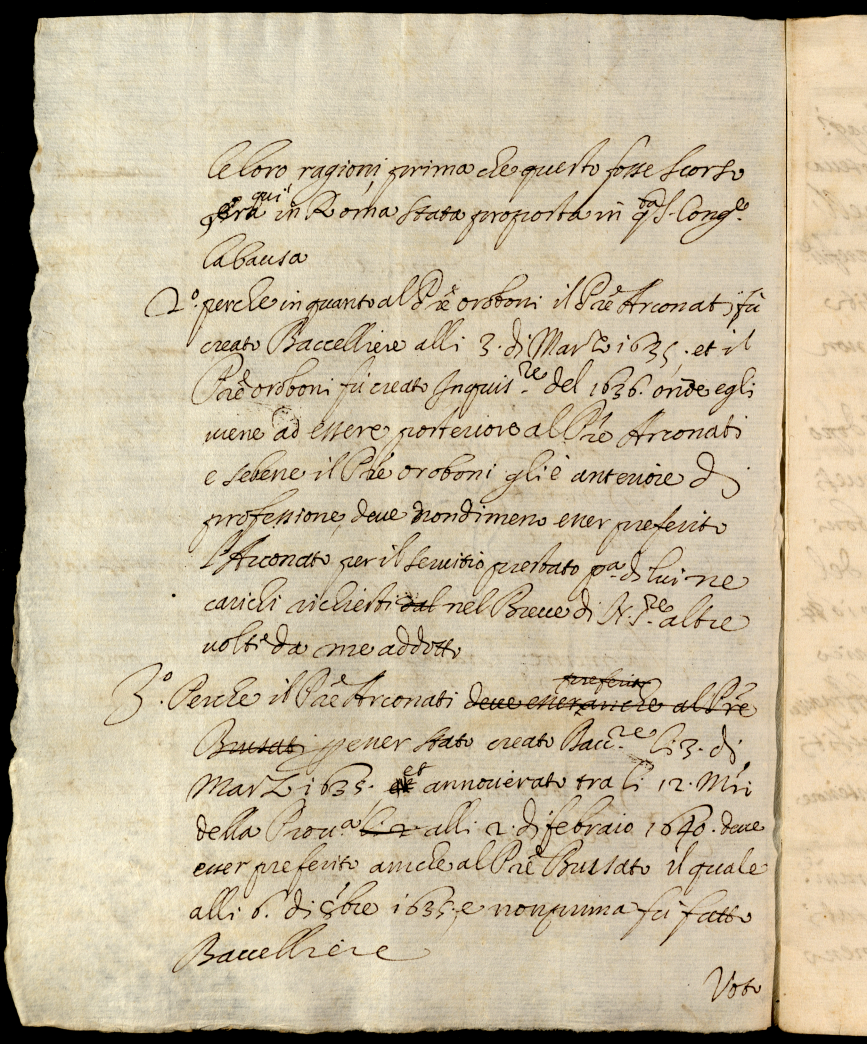 le loro ragioni prima che questo fosse scorso
qui in Roma stata proposta in q.ta S. Cong.e
la causa
2.o perche in quanto al Prē Oroboni il Prē Arconati fù
creato Baccelliere alli 3. di Marzo 1635. et il
Prē Oroboni fù creato Inquis.re del 1636. onde egli
viene ad essere posteriore al Prē Arconati
e sebene il Prē Oroboni gli è anteriore di
professione, deve nondimeno esser preferito
l'Arconato per il servitio prestato p.a di lui ne
carichi richiesti dal nel Breve di N. S.re altre
volte da me addotto
3.o Perche il Prē Arconati deve esser preferito anche al Prē
Bussati p esser stato creato Bacc.re li 3. di
Marzo 1635. et annoverato tra li 12. Mri
della Prov.a li 2 alli 2. di febraio 1640. deve
esser preferito anche al Prē Bussato il quale
alli 6. di 1635. e non prima fù fatto
Baccelliere
Voto